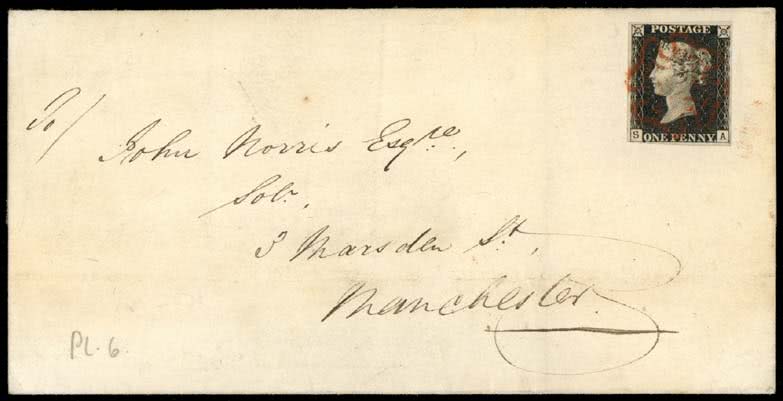 POSTAGE
S A
ONE PENNY
To/
John Norris Esqre.,
Solr.,
3 Marsden St,
Manchester.
PL. 6.